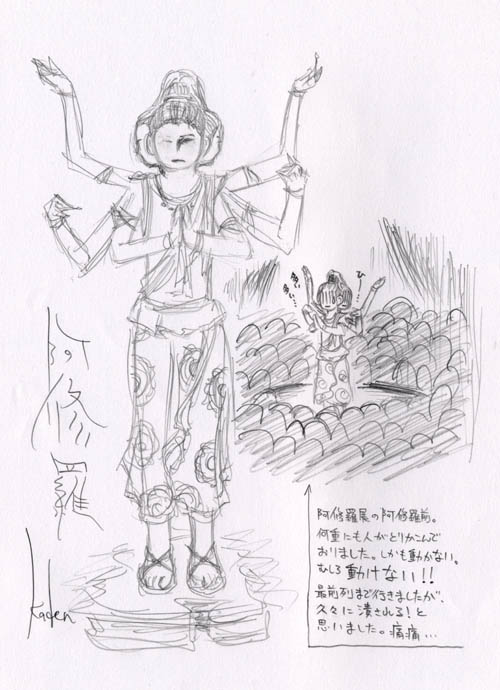 阿修羅
Kaden
阿修羅展の阿修羅前。
何重にも人がとりかこんで
おりました。しかも動かない。
むしろ動けない!!
最前列まで行きましたが、
久々に潰される!と
思いました。痛痛…